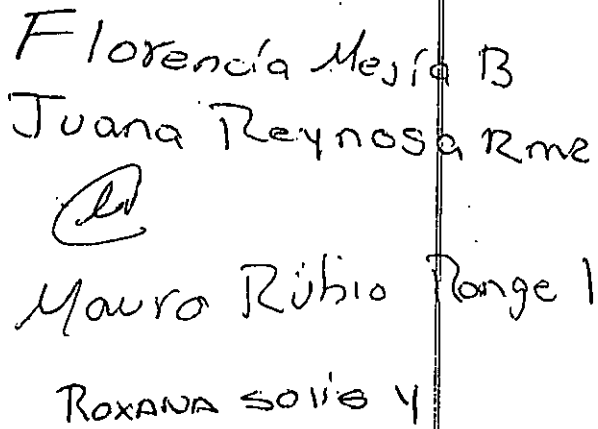 Florencía Mejía B
Juana Reynosa Rmz
Mauro Rubio Rangel
ROXANA SOLIS Y